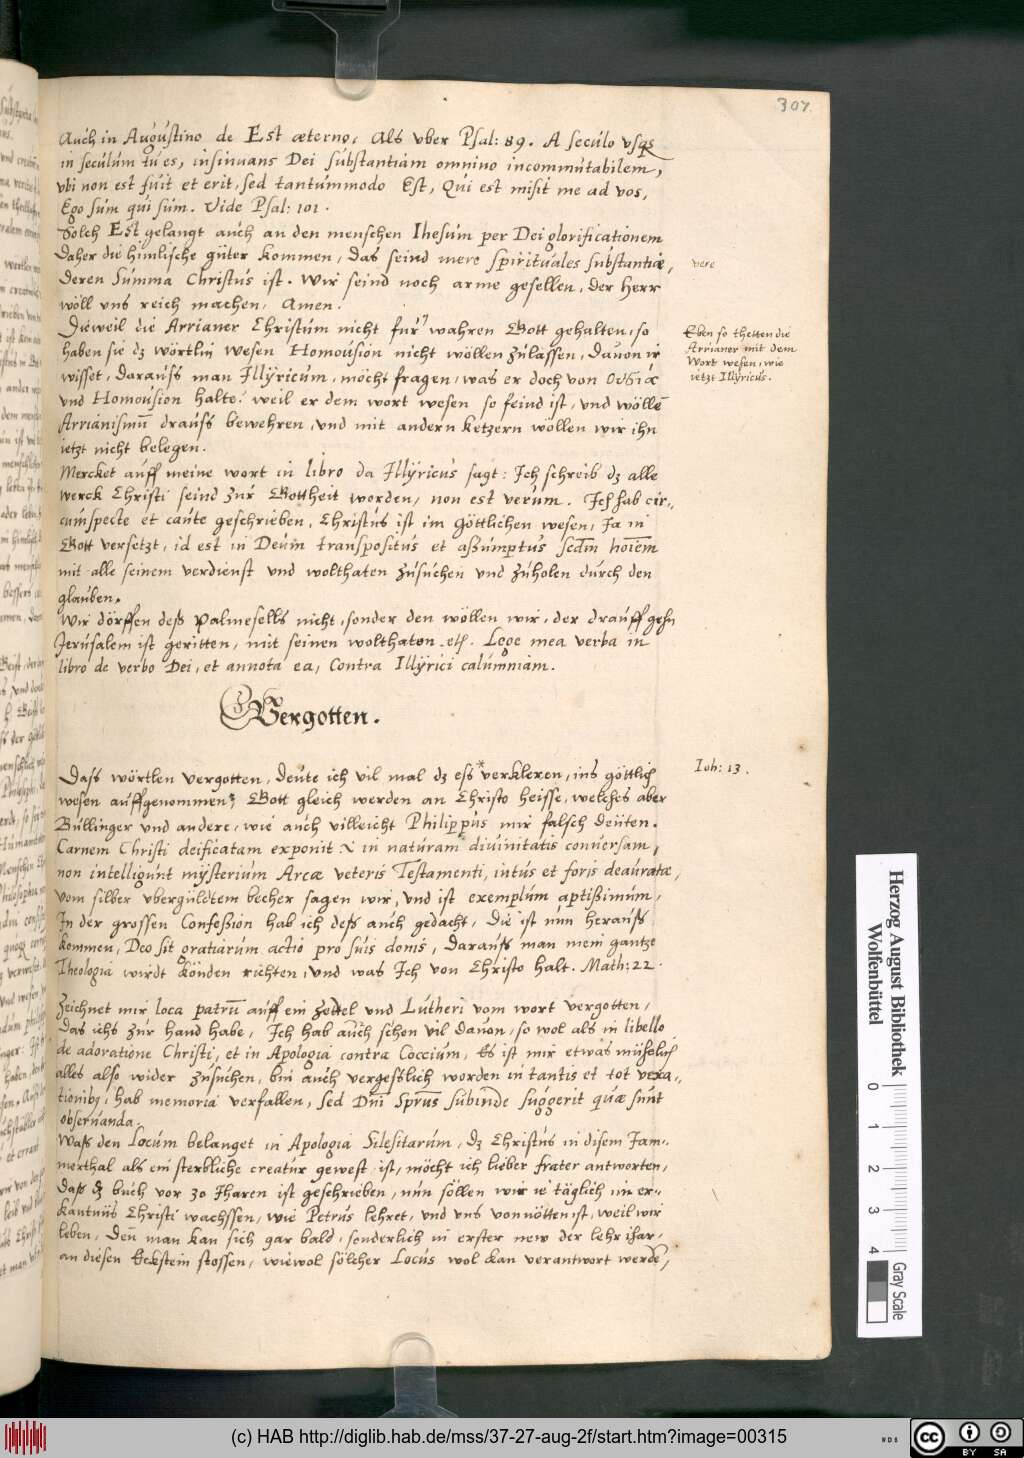 307.
Auch in Augustino de Est æterno, Als vber Psal: 89. A seculo vsqs
in seculum tu es, insinuans Dei substantiam omnino incommutabilem,
vbi non est fuit et erit, sed tantummodo Est, Qui est misit me ad vos,
Ego sum qui sum. Vide Psal: 101.
Solch Est gelangt auch an den menschen Ihesum per Dei glorificationem
Daher die himlische güter kommen, das seind mere spirituales substantiæ,
vere
deren Summa Christus ist. Wir seind noch arme gesellen, der Herr
wöll uns reich machen, Amen.
Dieweil die Arrianer Christum nicht fur wahren Gott gehalten, so
haben sie dz wörtlin Wesen Homousion nicht wöllen zulassen, Dauon ir
wisset, darauss man Illÿricum, möcht fragen, was er doch von Ousia
vnd Homousion halte. weil er dem wort wesen so feind ist, vnd wölle
Arrianismū drauss bewehren, vnd mit andern ketzern wöllen wir ihn
ietzt nicht belegen.
Eben so thetten die
Arrianer mit dem
Wort wesen, wie
ietzt Illÿricus.
Mercket auff meine wort in libro da Illÿricus sagt: Ich schreib dz alle
werck Christi seind zur Gottheit worden, non est verum. Ich hab cir-
cumspecte et caute geschrieben, Christus ist im göttlichen wesen, Ja in
Gott versetzt, id est in Deum transpositus et assumptus scdm hoiem
mit alle seinem verdienst vnd wolthaten zusuchen vnd zuholen durch den
glauben.
Wir dörffen dess Palmesells nicht, sonder den wöllen wir, der drauff gehn
Jerusalem ist geritten, mit seinen wolthaten etc. Lege mea verba in
libro de verbo Dei, et annota ea, Contra Illÿrici calumniam.
Vergotten.
Dass wörtlen vergotten, deute ich vil mal dz ess * verkleren, ins göttlich
Ioh: 13.
wesen auffgenommen, Gott gleich werden an Christo heisse, welches aber
Bullinger vnd andere, wie auch villeicht Philippus mir falsch deuten.
Carnem Christi deificatam exponit in naturam diuinitatis conuersam,
non intelligunt mÿsterium Arcæ veteris Testamenti, intus et foris deauratæ,
vom silber vbergüldtem becher sagen wir, vnd ist exemplum aptissimum,
In der grossen Confession hab ich dess auch gedacht, Die ist nun herauss
kommen, Deo sit gratiarum actio pro suis donis, Darauss man mein gantze
Theologia wirdt könden richten, vnd was Ich von Christo halt. Math: 22.
Zeichnet mir loca patrū auff ein zettel vnd Lutheri vom wort vergotten,
Das ichs zur hand habe, Ich hab auch schon vil dauon, so wol als in libello
de adoratione Christi, et in Apologia contra Coccium, Es ist mir etwas mühelich
alles also wider zusuchen, bin auch vergesslich worden in tantis et tot vexa-
tionibs, hab memoria verfallen, sed Dni Sprus subinde suggerit quæ sunt
obseruanda.
Wass den Locum belanget in Apologia Silesitarum, dz Christus in disem Jam-
merthal als ein sterbliche creatur gewest ist, möcht ich lieber frater antworten,
dass dz buch vor 30 Iharen ist geschrieben, nun söllen wir ie täglich im er-
kantnüs Christi wachssen, wie Petrus lehret, vnd vns von nötten ist, weil wir
leben, Den man kan sich gar bald, sonderlich in erster new der lehr ihar,
an diesen Eckstein stossen, wiewol sölcher Locus wol kan verantwort werde,
Herzog August Bibliothek
Wolfenbüttel
0 1 2 3 4
Gray Scale
(c) HAB http://diglib.hab.de/mss/37-27-aug-2f/start.htm?image=00315
WDB
cc BY SA